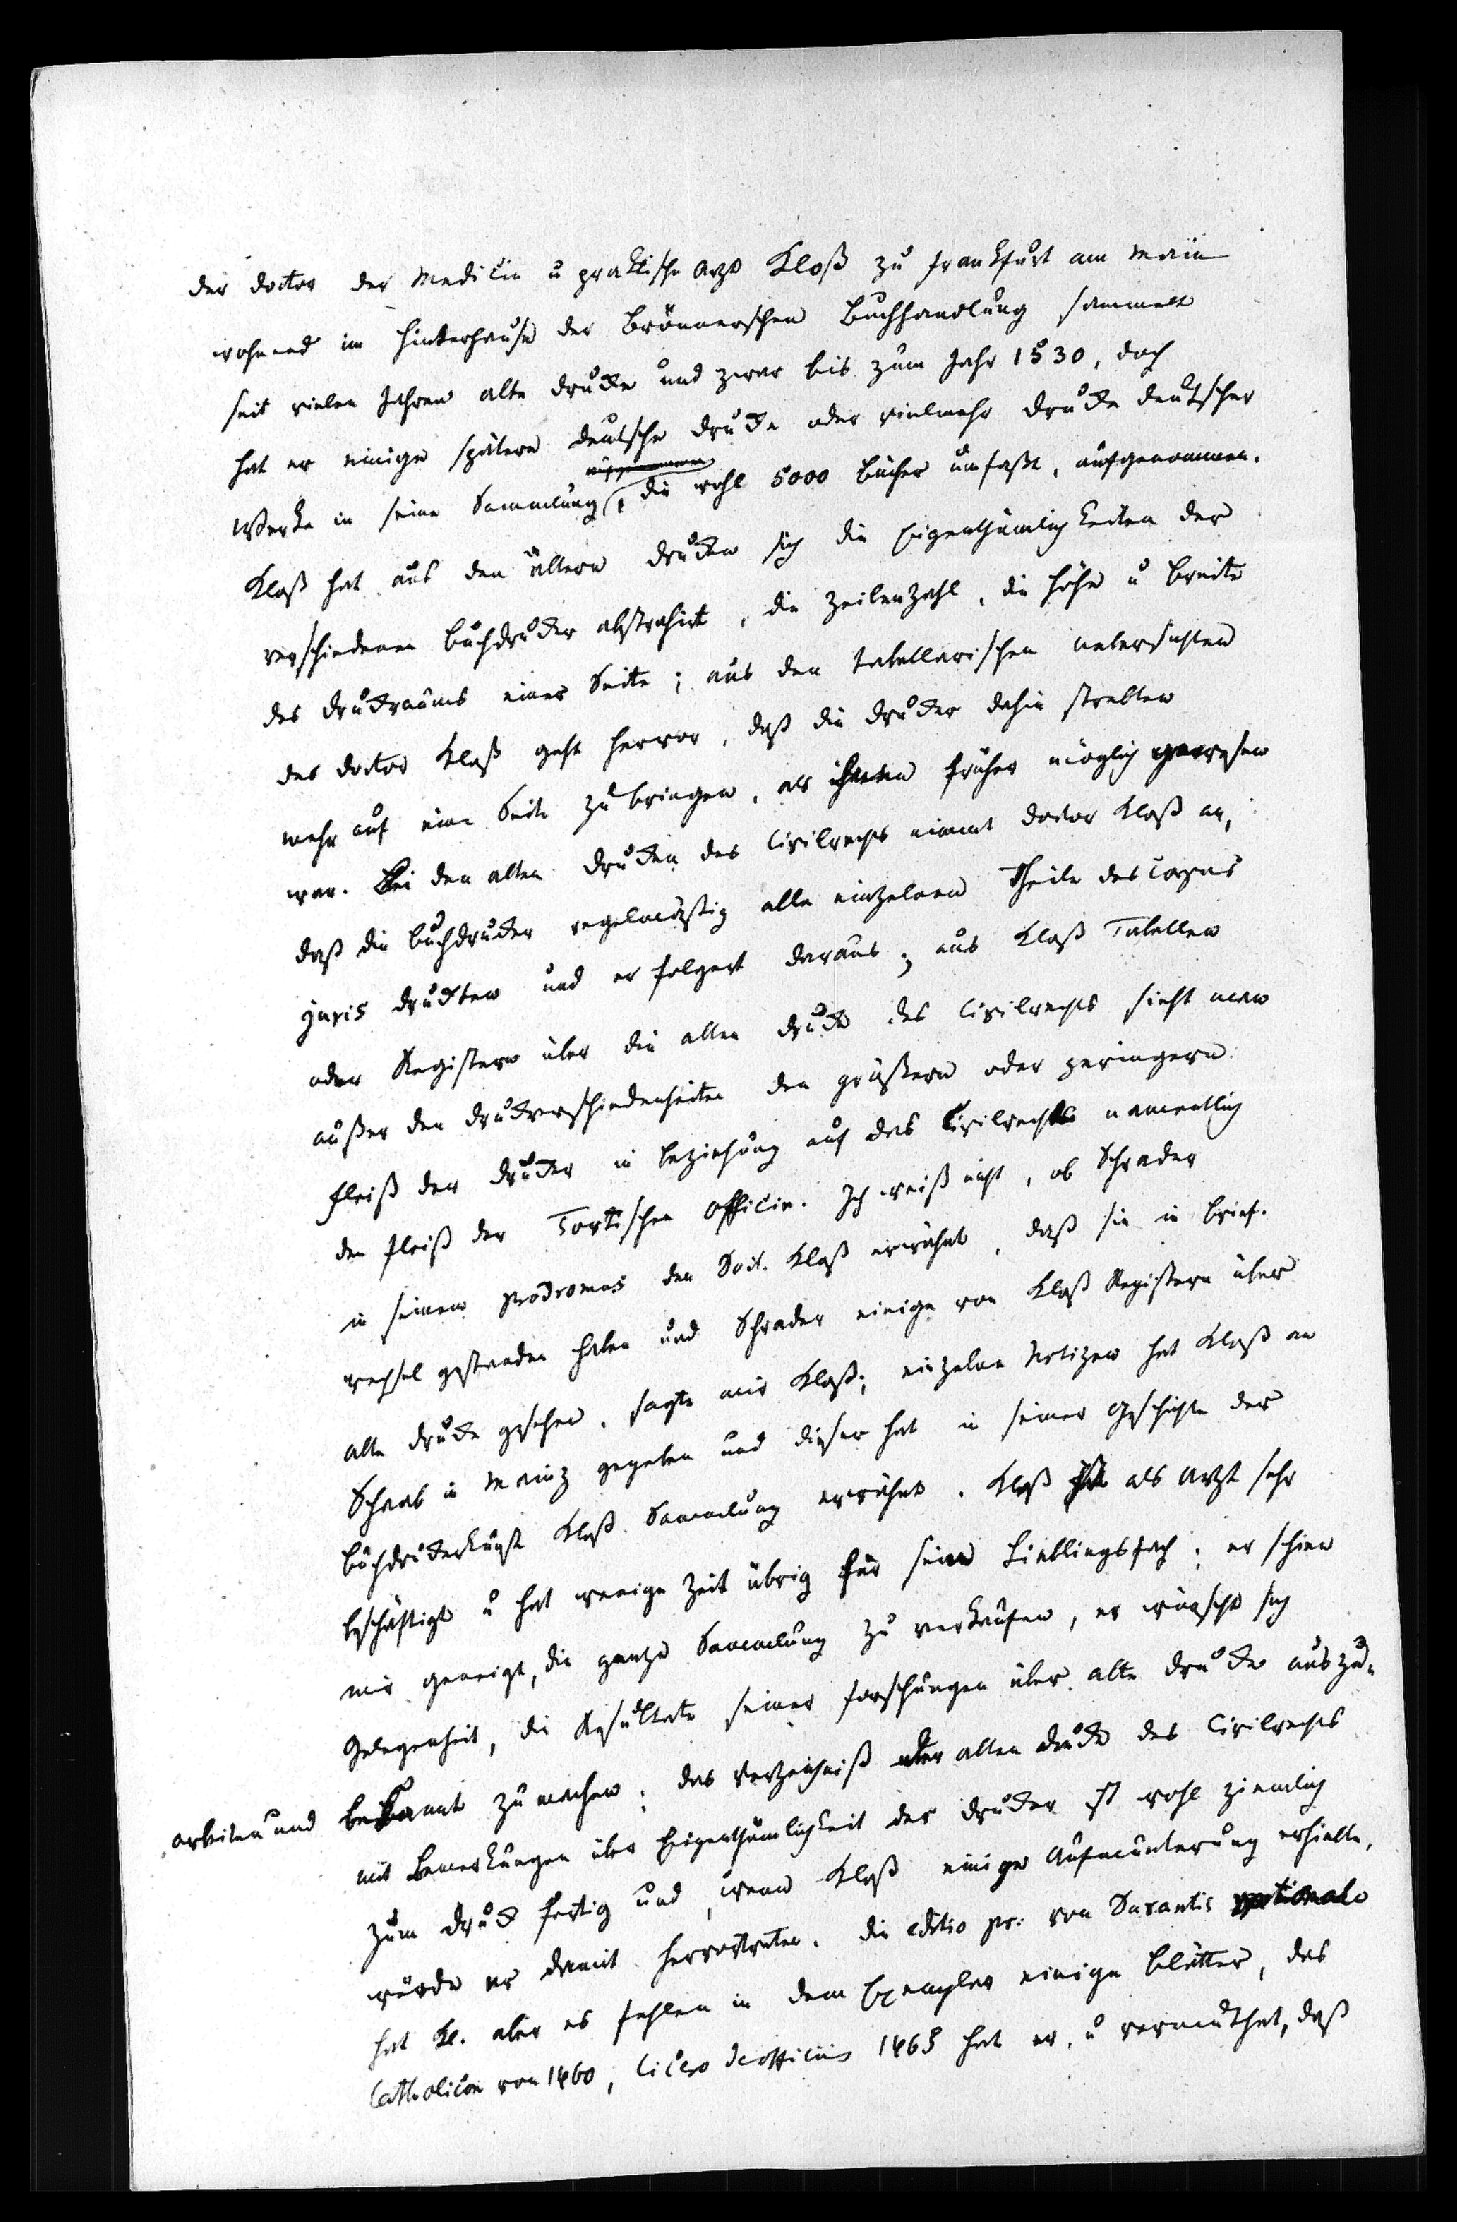 der Doctor der Medicin u praktische Arzt Kloß zu Frankfurt am Main
wohnend im Hinterhause der Brönnerschen Buchhandlung sammelt
seit vielen Jahren alte Drucke und zwar bis zum Jahr 1530, doch
hat er einige spätere deutsche Drucke oder vielmehr Drucke deutscher
Werke in seine Sammlung, die wohl 5000 Bücher umfaßt, aufgenommen.
Kloß hat aus den ältern Drucken sich die Eigenthümlichkeiten der
verschiedenen Buchdrucker abstrahirt, die Zeilenzahl, die Höhe u Breite
des Druckraums einer Seite; aus den tabellarischen Uebersichten
des Doctor Kloß geht hervor, daß die Drucker dahin strebten
mehr auf eine Seite zu bringen, als ihnen früher möglich gewesen
war. Bei den alten Drucken des Civilrechts nimmt Doctor Kloß an,
daß die Buchdrucker regelmäßig alle einzelnen Theile des Corpus
juris druckten und er folgert daraus; aus Kloß Tabellen
oder Registern über die alten Drucke des Civilrechts sieht man
außer den Druckverschiedenheiten den größern oder geringern
Fleiß der Drucker in Beziehung auf das Civilrecht namentlich
den Fleiß der Tortischen Officin. Ich weiß nicht, ob Schrader
in seinem Prodromus den Doct. Kloß erwähnt, daß sie in Brief-
wechsel gestanden haben und Schrader einige von Kloß Registern über
alte Drucke gesehen, sagte mir Kloß; einzelne Notizen hat Kloß an
Schaab in Mainz gegeben und dieser hat in seiner Geschichte der
Buchdruckerkunst Kloß Sammlung erwähnt. Kloß ist als Arzt sehr
beschäftigt u hat wenige Zeit übrig für sein Lieblingsfach; er schien
mir geneigt, die ganze Sammlung zu verkaufen, er wünscht sich
Gelegenheit, die Resultate seiner Forschungen über alte Drucke auszu-
arbeiten und bekannt zu machen; das Verzeichniß der alten Drucke des Civilrechts
mit Bemerkungen über Eigenthümlichkeit der Drucker ist wohl ziemlich
zum Druck fertig und, wenn Kloß einige Aufmunterung erhielte,
würde er damit hervortreten. Die editio pr. von Durantis rationale
hat Kl. aber es fehlen in dem Exemplar einige Blätter, das
Catholicon von 1460, Cicero de officiis 1465 hat er, u vermuthet, daß